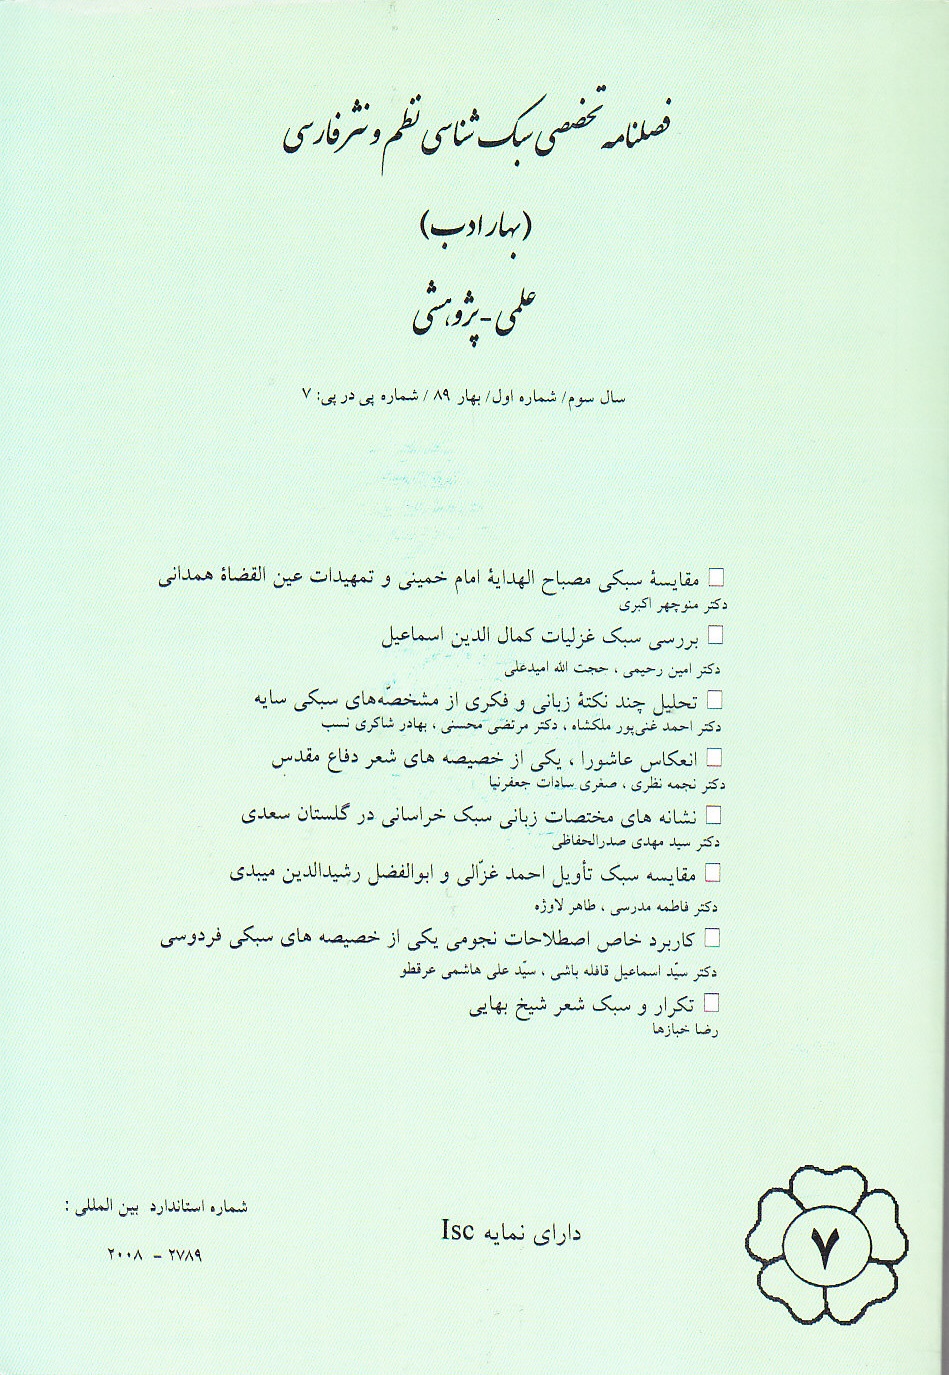 فصلنامه تخصصی سبک شناسی نظم و نثر فارسی
(بهار ادب)
علمی - پژوهشی
سال سوم/ شماره اول/ بهار ۸۹ / شماره پی در پی: ۷
مقایسۀ سبکی مصباح الهدایۀ امام خمینی و تمهیدات عین القضاة همدانی
دکتر منوچهر اکبری
بررسی سبک غزلیات کمال الدین اسماعیل
دکتر امین رحیمی ، حجت الله امیدعلی
تحلیل چند نکتۀ زبانی و فکری از مشخصّه‌های سبکی سایه
دکتر احمد غنی‌پور ملکشاه ، دکتر مرتضی محسنی ، بهادر شاکری نسب
انعکاس عاشورا ، یکی از خصیصه های شعر دفاع مقدس
دکتر نجمه نظری ، صغری سادات جعفرنیا
نشانه های مختصات زبانی سبک خراسانی در گلستان سعدی
دکتر سید مهدی صدرالحفاظی
مقایسه سبک تأویل احمد غزّالی و ابوالفضل رشیدالدین میبدی
دکتر فاطمه مدرسی ، طاهر لاوژه
کاربرد خاص اصطلاحات نجومی یکی از خصیصه های سبکی فردوسی
دکتر سیّد اسماعیل قافله باشی ، سیّد علی هاشمی عرقطو
تکرار و سبک شعر شیخ بهایی
رضا خبازها
شماره استاندارد بین المللی :
۲۰۰۸ – ۲۷۸۹
دارای نمایه Isc
۷